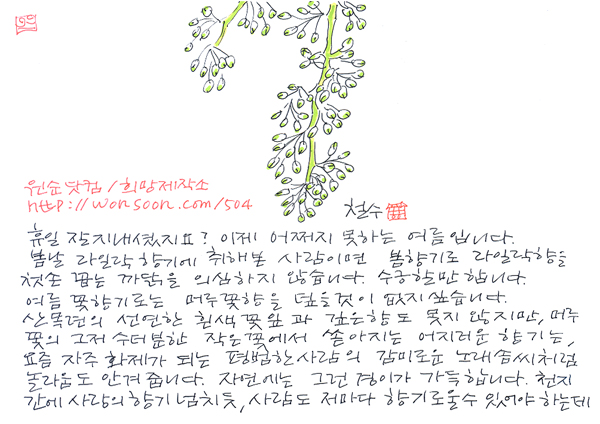 원순닷컴/희망제작소
http://wonsoon.com/504
철수
휴일 잘지내셨지요? 이제 어쩌지 못하는 여름입니다.
봄날 라일락 향기에 취해본 사람이면 봄향기로 라일락향을
첫손 꼽는 까닭을 의심하지 않습니다. 수긍할만 합니다.
여름 꽃향기로는 머루꽃향을 덮을것이 없지싶습니다.
산목련의 선연한 흰색꽃잎과 깊은향도 못지 않지만, 머루
꽃의 그저 수더분한 작은꽃에서 쏟아지는 어지러운 향기는,
요즘 자주 화제가 되는 평범한사람의 감미로운 노래솜씨처럼
놀라움도 안겨줍니다. 자연에는 그런경이가 가득합니다. 천지
간에 사랑의향기 넘치듯, 사람도 저마다 향기로울수 있어야 하는데